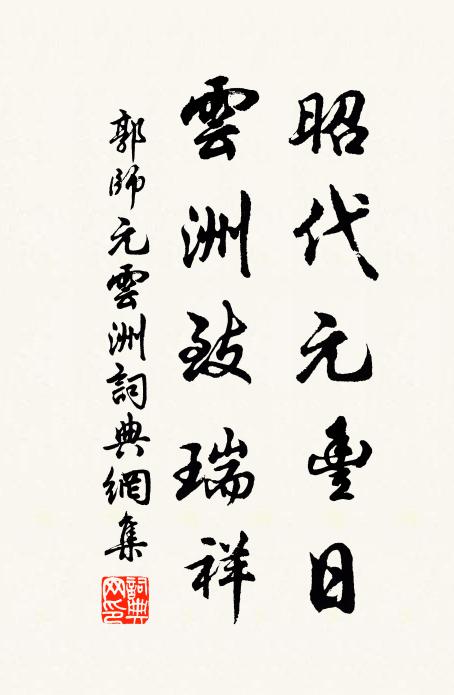 昭代元豊日
雲洲致瑞祥
郭師元雲洲詞典網集
詞典網印